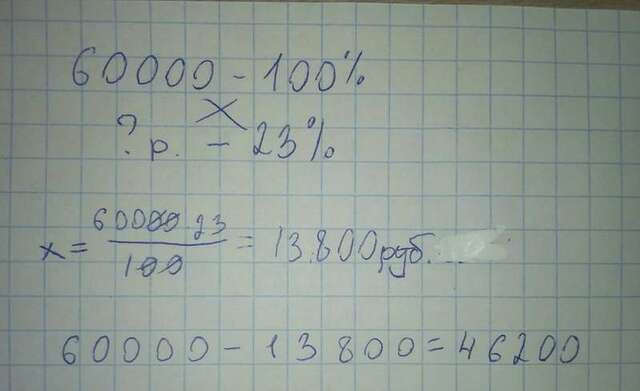 60000 - 100%
? р. - 23%
x = 60000 23 / 100 = 13.800 руб.
60000 - 13800 = 46200